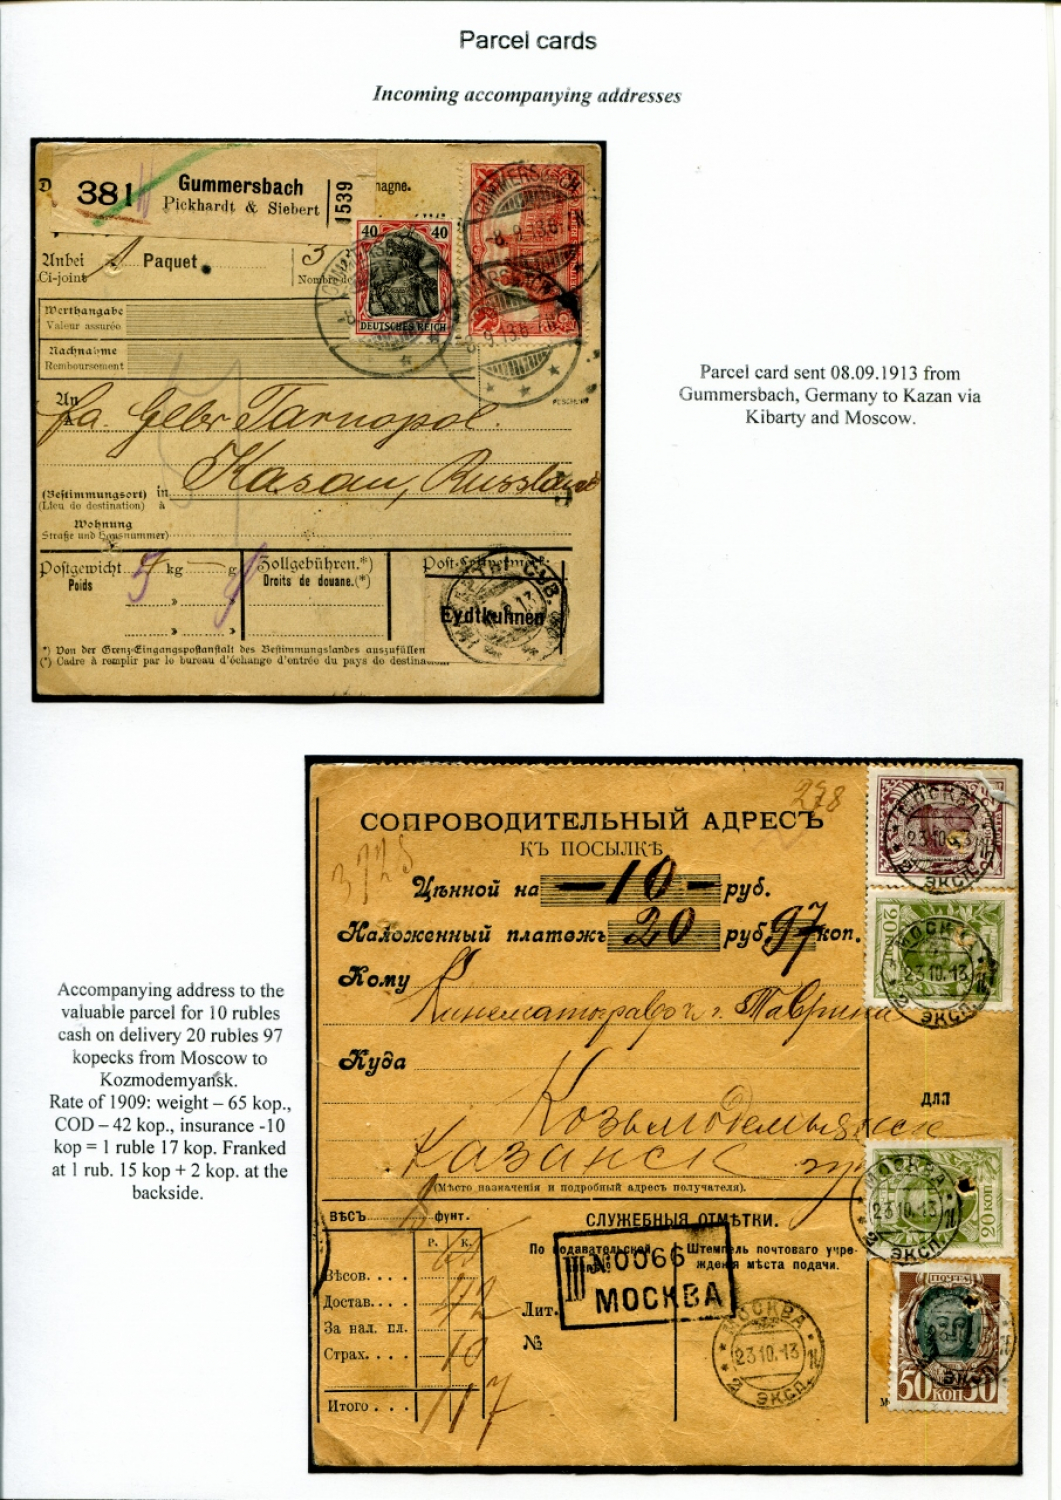 Parcel cards
Incoming accompanying addresses
381
Gummersbach
Pickhardt & Siebert
1539
magne.
40 40
DEUTSCHES REICH
GUMMERSBACH
-8.9.13.6-7N
Anbei
Ci-joint
1 Paquet
3
Werthangabe
Valeur assurée
Nachnahme
Remboursement
An
Fa. Gebr Tarnopol.
Kasan, Russland
(Bestimmungsort) in
(Lieu de destination) à
Wohnung
Straße und Hausnummer)
Postgewicht 5 kg g
Poids
Zollgebühren.*)
Droits de douane.(*)
Eydtkuhnen
*) Von der Grenz-Eingangspostanstalt des Bestimmungslandes auszufüllen
(*) Cadre à remplir par le bureau d'échange d'entrée du pays de destination.
Parcel card sent 08.09.1913 from
Gummersbach, Germany to Kazan via
Kibarty and Moscow.
278
СОПРОВОДИТЕЛЬНЫЙ АДРЕСЪ
КЪ ПОСЫЛКѢ
Цѣнной на —10— руб.
Наложенный платежъ 20 руб. 97 коп.
Кому
Кинематографъ г. Таврина
Куда
Козьмодемьянск
Казанск гу
(Мѣсто назначенія и подробный адресъ получателя).
ДЛЯ
ВѢСЪ 8 фунт.
СЛУЖЕБНЫЯ ОТМѢТКИ.
Р. К.
По подавательской
Штемпель почтоваго учре-
жденія мѣста подачи.
Вѣсов. . . . 65
Достав. . . .
За нал. пл. 42
Страх. . . . 10
Итого . . . 117
Лит.
№
III № 0066
МОСКВА
МОСКВА
23.10.13
2 ЭКСП.
20 КОП
20 КОП
ПОЧТА
50 КОП 50
Accompanying address to the
valuable parcel for 10 rubles
cash on delivery 20 rubles 97
kopecks from Moscow to
Kozmodemyansk.
Rate of 1909: weight – 65 kop.,
COD – 42 kop., insurance -10
kop = 1 ruble 17 kop. Franked
at 1 rub. 15 kop + 2 kop. at the
backside.